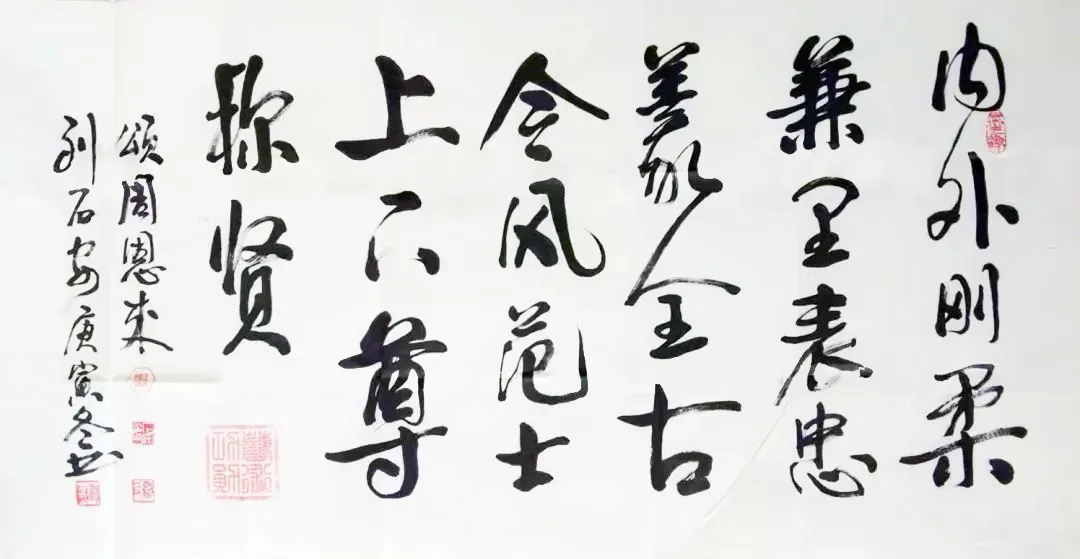 内外刚柔
兼里表忠
义全古
今风范士
上下尊
称贤
颂周恩来
刘石安庚寅冬书